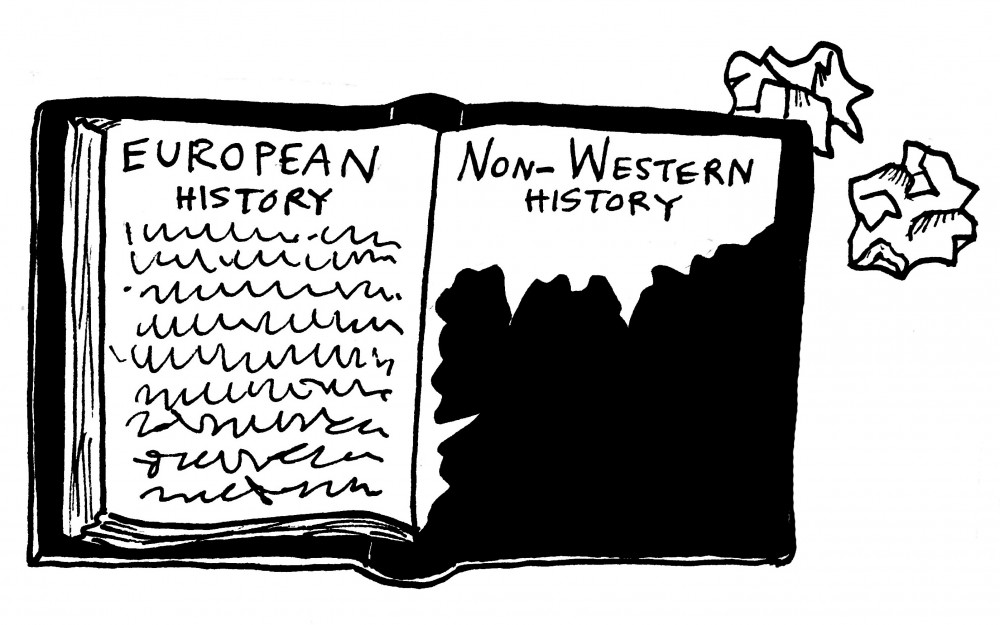 EUROPEAN
HISTORY
NON-WESTERN
HISTORY